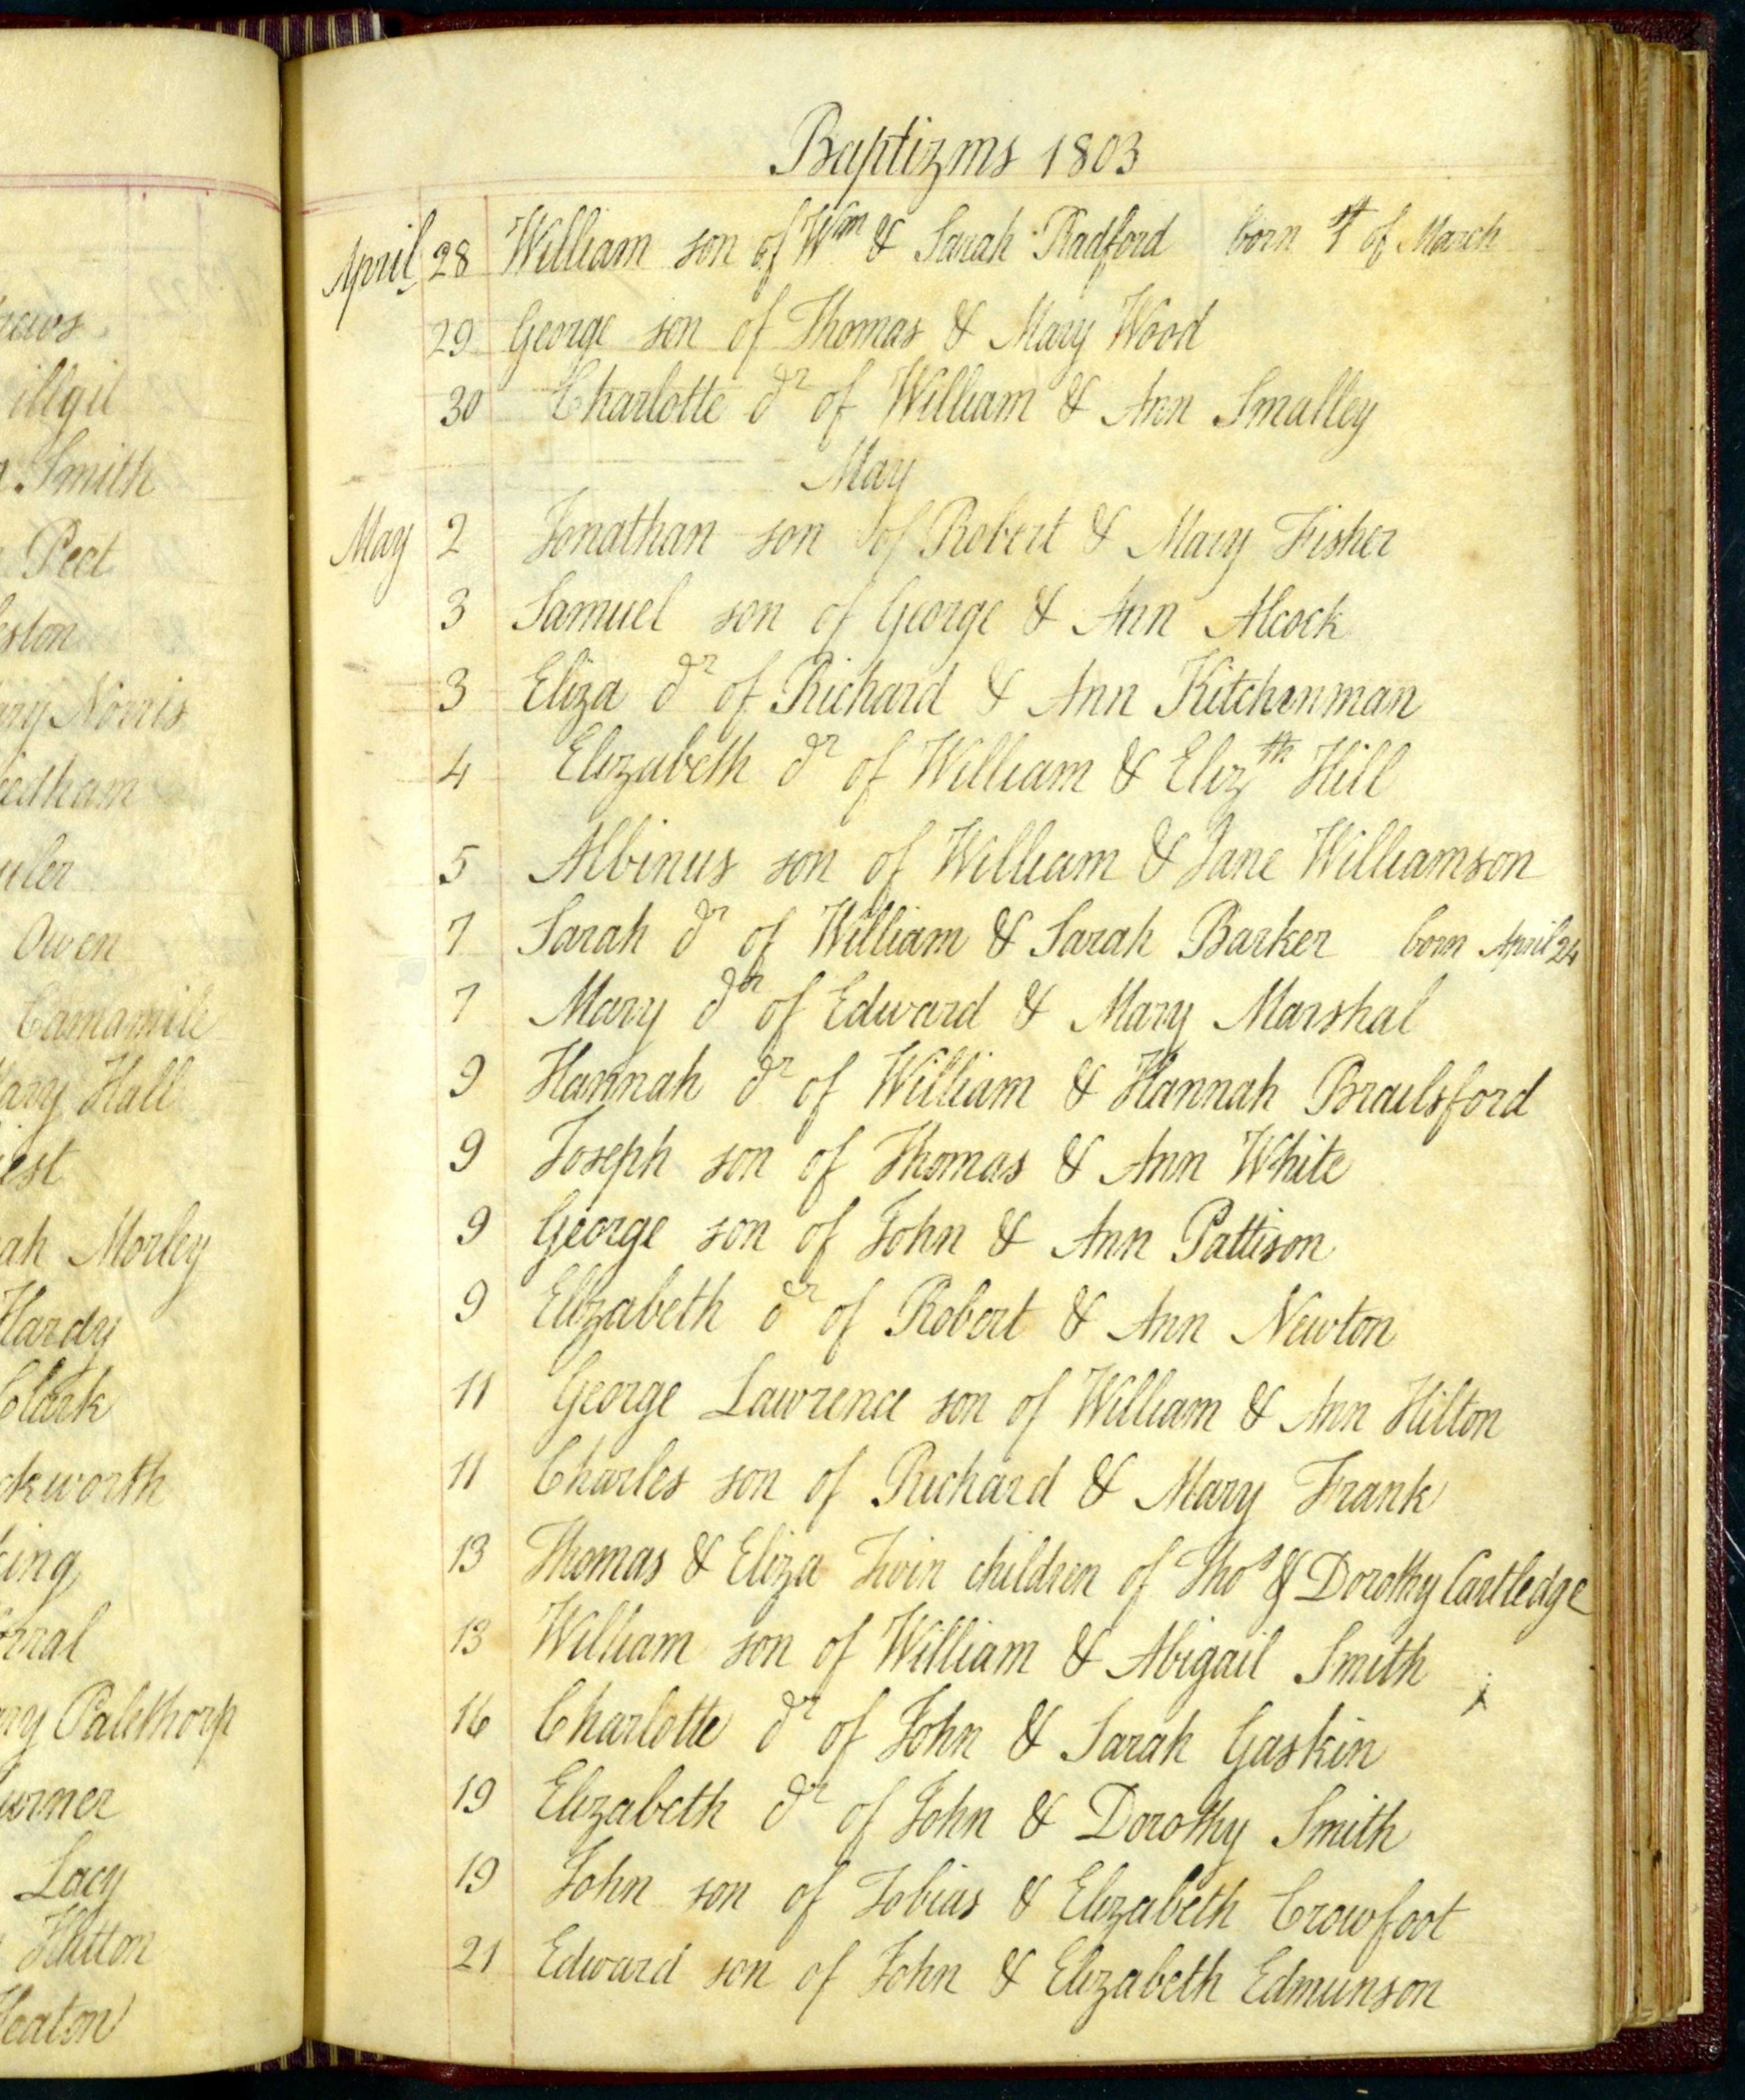 raws
illgit
Smith
Peet
eston
ary Norris
eedham
uler
Owen
Camamile
Mary Hall
iest
ah Morley
Hardy
Clark
ckworth
King
orral
ary Palethorp
urner
Lacy
Hutton
Heaton
Baptizms 1803
April 28 William son of Wm & Sarah Radford born 1st of March
29 George son of Thomas & Mary Wood
30 Charlotte dr of William & Ann Smalley
May
May 2 Jonathan son of Robert & Mary Fisher
3 Samuel son of George & Ann Alcock
3 Eliza dr of Richard & Ann Kitchenman
4 Elizabeth dr of William & Elizth Hill
5 Albinus son of William & Jane Williamson
7 Sarah dr of William & Sarah Barker born April 24
7 Mary dr of Edward & Mary Marshal
9 Hannah dr of William & Hannah Brailsford
9 Joseph son of Thomas & Ann White
9 George son of John & Ann Pattison
9 Elizabeth dr of Robert & Ann Newton
11 George Lawrence son of William & Ann Hilton
11 Charles son of Richard & Mary Frank
13 Thomas & Eliza Twin children of Thos & Dorothy Cartledge
13 William son of William & Abigail Smith
16 Charlotte dr of John & Sarah Gaskin
19 Elizabeth dr of John & Dorothy Smith
19 John son of Tobias & Elizabeth Crowfoot
21 Edward son of John & Elizabeth Edmunson